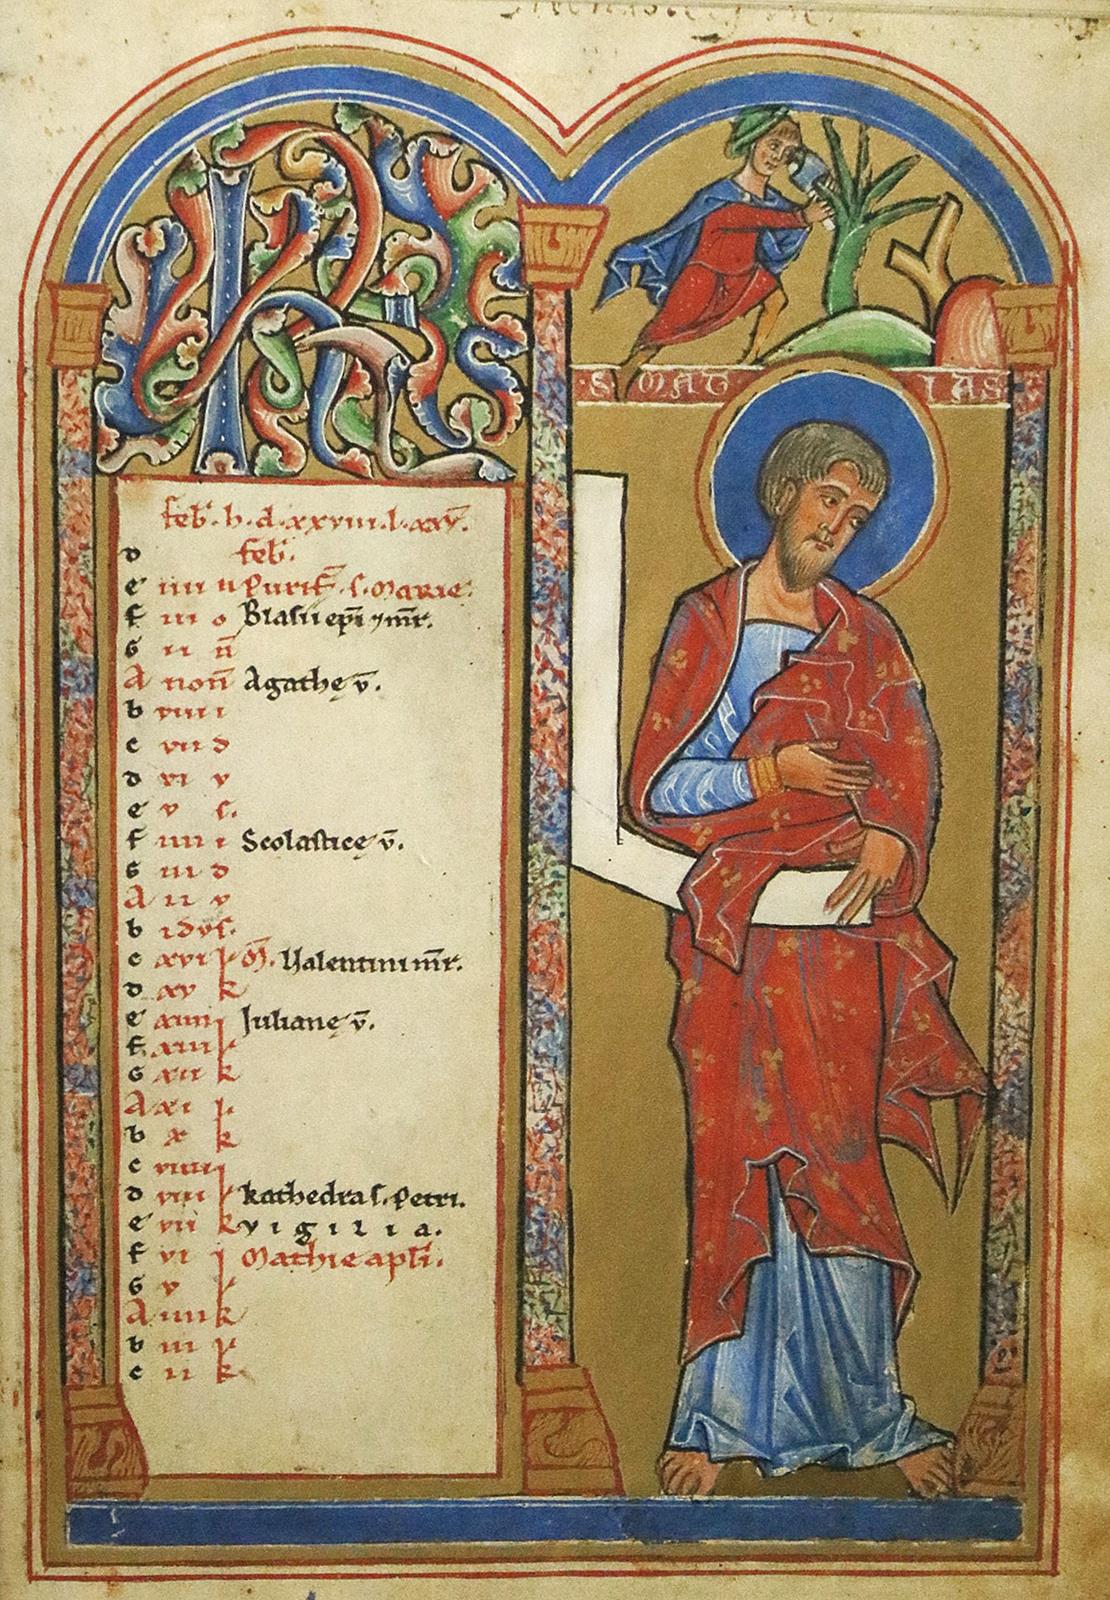 KL
·S· MAT·IAS
feb'. h. d. xxviii. l. xxx.
d feb'.
e iiii n Purif. s. Marie.
f iii o Blasii epi 7 mr.
G ii n
A non Agathe v.
b viii i
c vii d
d vi v
e v s.
f iiii i Scolastice v.
G iii d
A ii v
b idus.
c xvi k M. Valentini mr.
d xv k
e xiiii k Juliane v.
f xiii k
G xii k
A xi k
b x k
c viiii k
d viii k kathedra s. Petri.
e vii k vigilia.
f vi k Mathie apli.
G v k
A iiii k
b iii k
c ii k